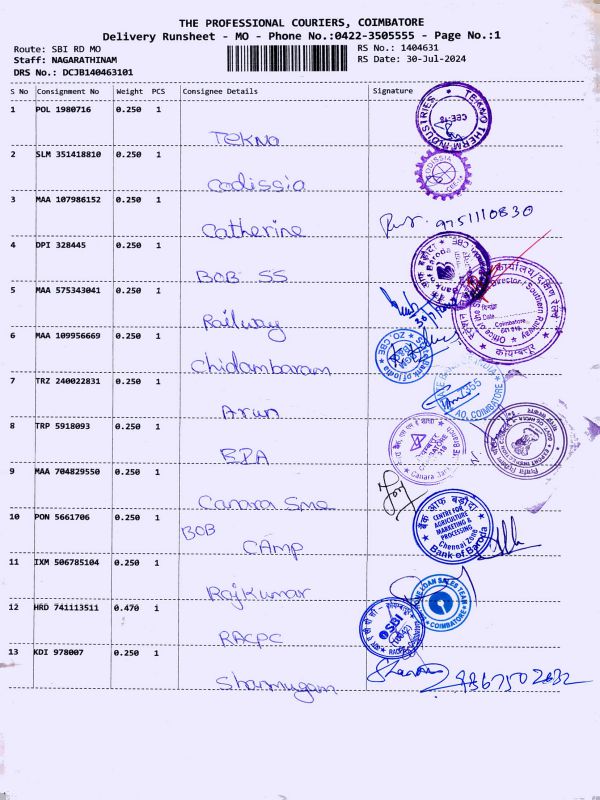 THE PROFESSIONAL COURIERS, COIMBATORE
Delivery Runsheet - MO - Phone No.:0422-3505555 - Page No.:1
Route: SBI RD MO
Staff: NAGARATHINAM
DRS No.: DCJB140463101
RS No.: 1404631
RS Date: 30-Jul-2024
S No Consignment No Weight PCS Consignee Details Signature
1 POL 1980716 0.250 1
TEKNO
TEKNO THERM INDUSTRIES
CBE-18
2 SLM 351418810 0.250 1
Codissia
CODISSIA
3 MAA 107986152 0.250 1
Catherine
9751110830
4 DPI 328445 0.250 1
BOB SS
Bank of Baroda
5 MAA 575343041 0.250 1
Railway
Southern Railway
Coimbatore
6 MAA 109956669 0.250 1
Chidambaram
Bank of India
ZO CBE
7 TRZ 240022831 0.250 1
Arun
AO, COIMBATORE
8 TRP 5918093 0.250 1
Canara
9 MAA 704829550 0.250 1
Canara Sme
10 PON 5661706 0.250 1
BOB
CAmp
बैंक ऑफ़ बड़ौदा
CENTRE FOR
AGRICULTURE
MARKETING &
PROCESSING
Chennai Zone
Bank of Baroda
11 IXM 506785104 0.250 1
Rajkumar
SALES TEAM
COIMBATORE
12 HRD 741113511 0.470 1
RACPC
SBI
13 KDI 978007 0.250 1
Shanmugam